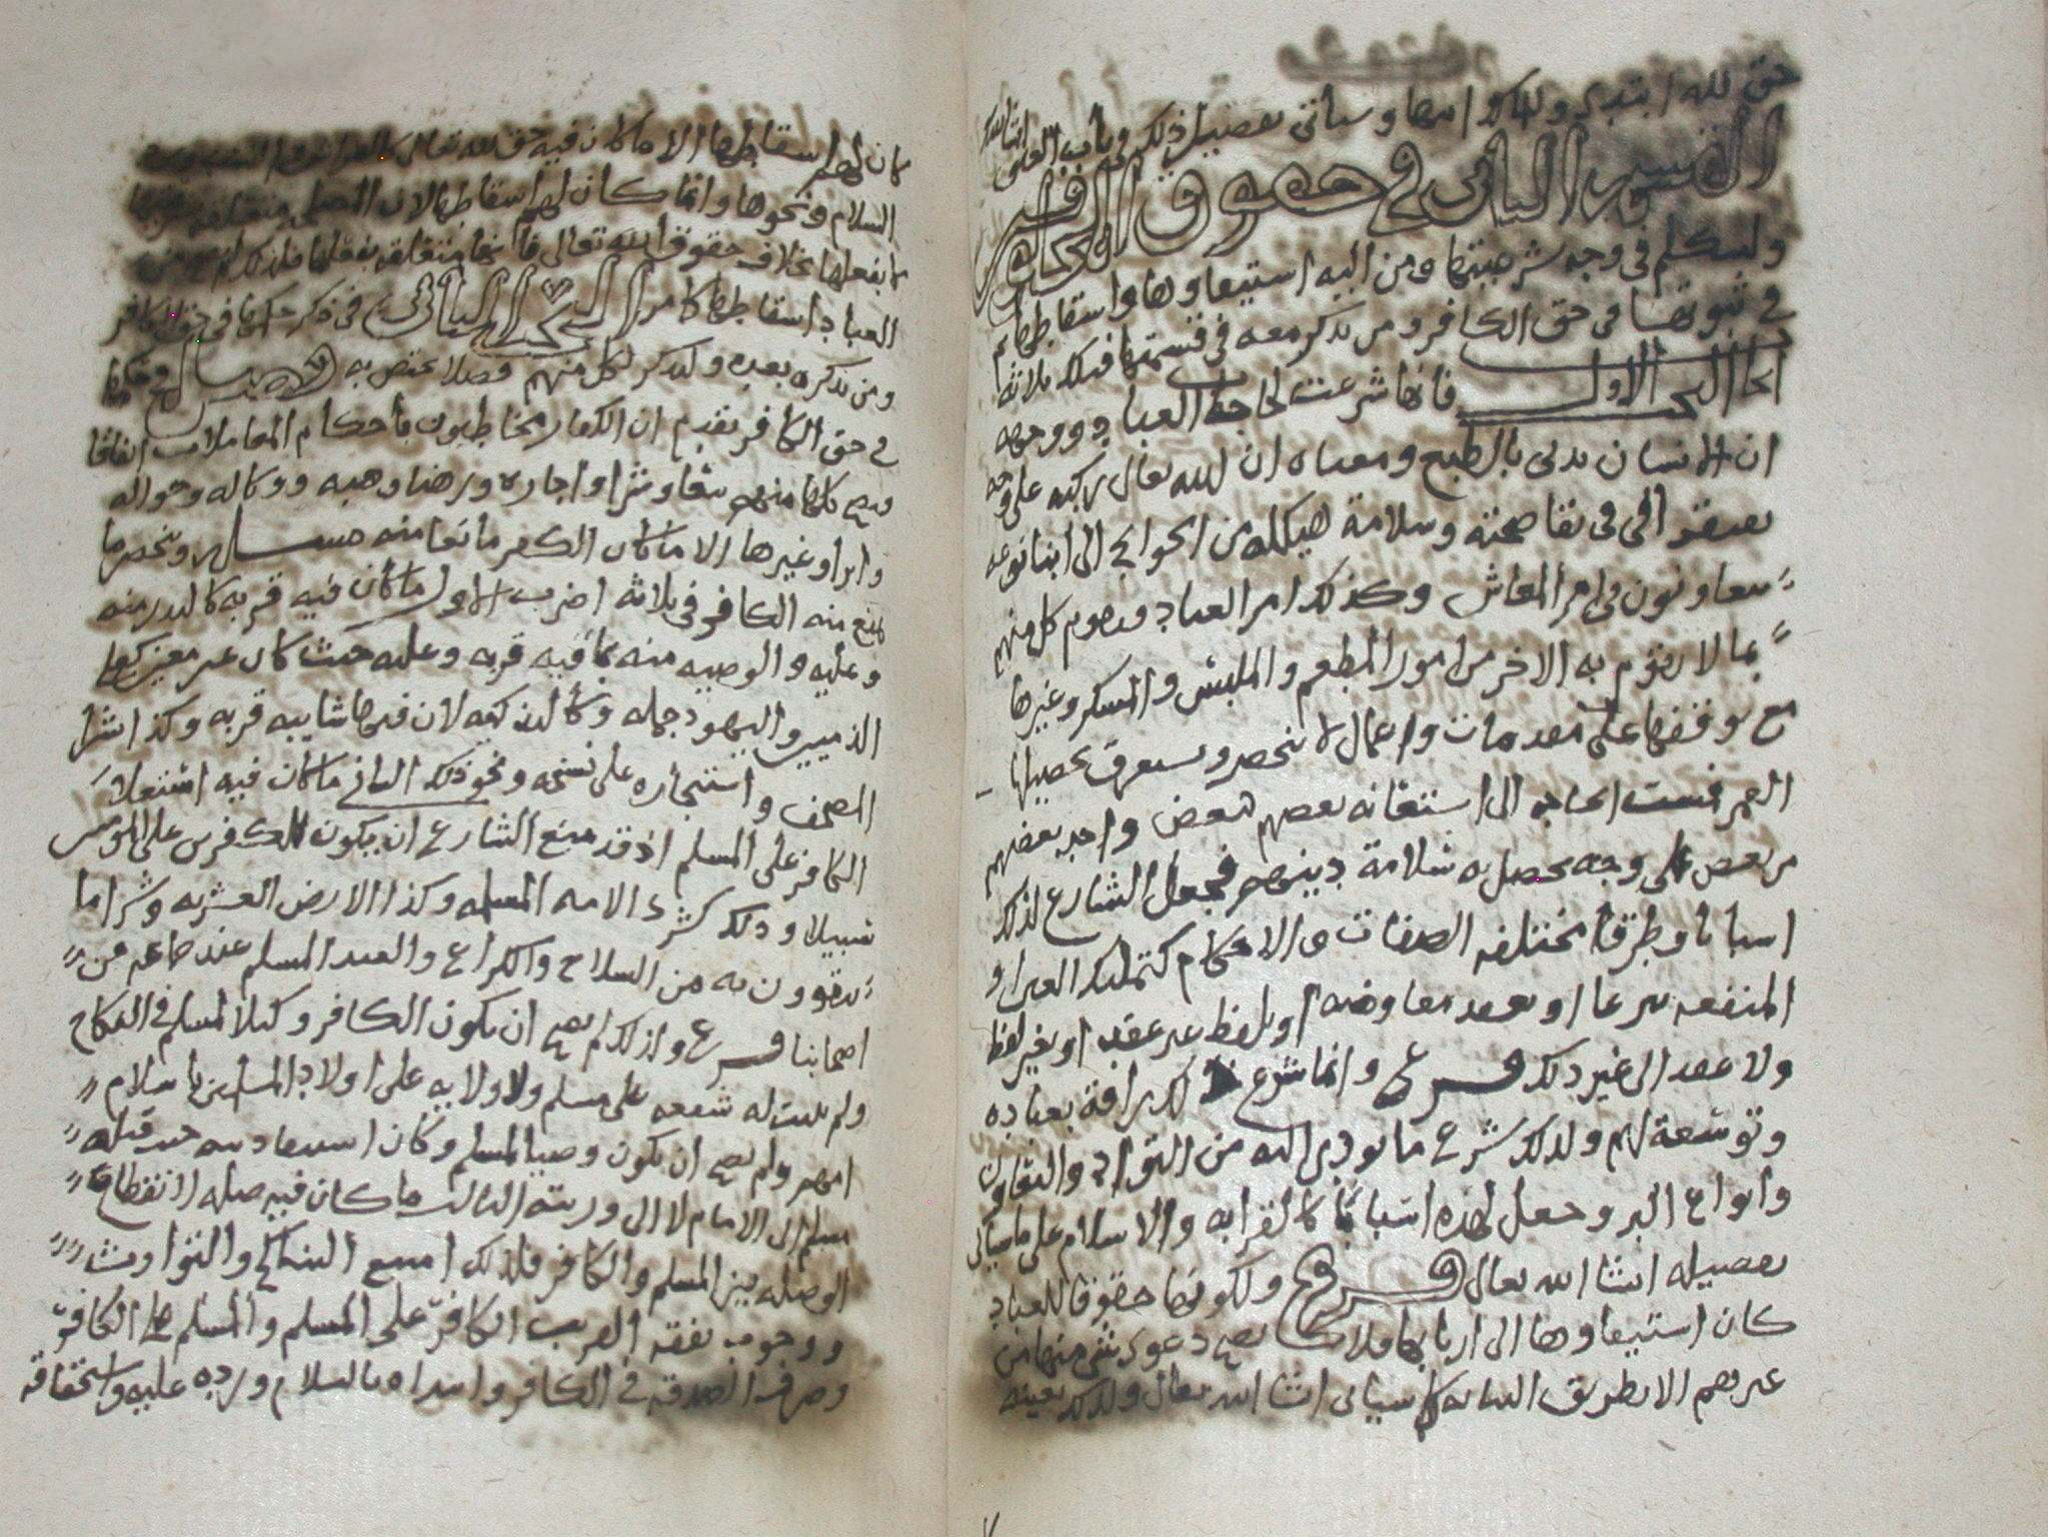 حق لله ابتدي ولذلك اسها وسياتى تفصيل ذلك في باب العلى انشا الله
القسم الثاني في حقوق
ولنتكلم في وجه شرعيتها ومن اليه استيفاوها واسقاطها ثم
في ثبوتها في حق الكافر ومن يذكر معه في قسمتها فتلك ثلاثة
اما البحث الاول فانها شرعت لحاجة العباد ووجهه
ان الانسان مدنى بالطبع ومعناه ان الله تعالى ركبه على وجه
يفتقر في بقا صحته وسلامة هيكله من الحوايج الى ابنا نوعه
يتعاونون في امر المعاش وكذلك امر العباد ويقوم كل منهم
بما لا يقوم به الاخر من امور المطعم والملبس والمسكن وغيرها
مع توقفها على مقدمات واعمال لا تنحصر ويستغرق تحصيلها
العمر فمست الحاجه الى استعانه بعضهم ببعض واخذ بعضهم
من بعض على وجه يحصل به سلامة دينهم فجعل الشارع لذلك
اسبابا وطرقا مختلفه الصفات والاحكام كتمليك العين او
المنفعه شرعا او بعقد معاوضه او بلفظ غير عقد او بغير لفظ
ولا عقد الى غير ذلك فرع وانما شرع ذلك رافة بعباده
وتوسعة لهم ولذلك شرع ما يودي اليه من التواد والتعاون
وانواع البر وجعل لهذه اسبابا كالقرابه والاسلام على ما سياتي
تفصيله انشا الله تعالى فرع ولكونها حقوقا للعباد
كان استيفاوها الى اربابها فلا يصح دعوى شي منها من
غيرهم الا بطريق النيابه كما سياتى انشا الله تعالى ولذلك بعينه
كان لهم اسقاطها الا ما كان فيه حق لله تعالى
السلام ونحوها وانما كان لهم اسقاطها لان
بفعلها بخلاف حقوق الله تعالى فانها متعلقه بفعلها فلذلك لم
العباد اسقاطها كما مر البحث الثاني في ذكر حكمها في حق الكافر
ومن نذكره بعده ولنذكر لكل منهم فصلا يختص به فصل
في حق الكافر تقدم ان الكفار مخاطبون باحكام المعاملات اتفاقا
فيصح كلها منهم بيعا وشرا واجاره ورهنا وهبه ووكاله وحواله
وابرا وغيرها الا ما كان الكفر مانعا منه مسله وينحصر ما
يمنع منه الكافر في ثلاثة اضرب الاول ما كان فيه قربه كالنذر منه
وعليه والوصيه منه بما فيه قربه وعليه حيث كان غير معين كعلى
الذميين واليهود جمله وكالبيعه لان فيها شايبه قربه وكذا شرا
المصحف واستئجاره على نسخه ونحو ذلك الثاني ما كان فيه استعلا
الكافر على المسلم اذ قد منع الشارع ان يكون للكافرين على المومنين
سبيلا وذلك كشرى الامه المسلمه وكذا الارض العشريه وشرا ما
يتقوون به من السلاح والكراع والعبد المسلم عند جماعه من
اصحابنا فرع ولذلك لم يصح ان يكون الكافر وكيلا لمسلم في النكاح
ولم يثبت له شفعه على مسلم ولا ولايه على اولاد المسلمين باسلام
امهم ولم يصح ان يكون وصيا لمسلم وكان استيفا ديه حيث قتله
مسلم الى الامام لا الى ورثته الثالث ما كان فيه صله لانقطاع
الوصله بين المسلم والكافر فلذلك امتنع النكاح والتوارث
ووجوب نفقه القريب الكافر على المسلم والمسلم على الكافر
وصرف الصدقه في الكافر وابتداه بالسلام ورده عليه واستحقاقه